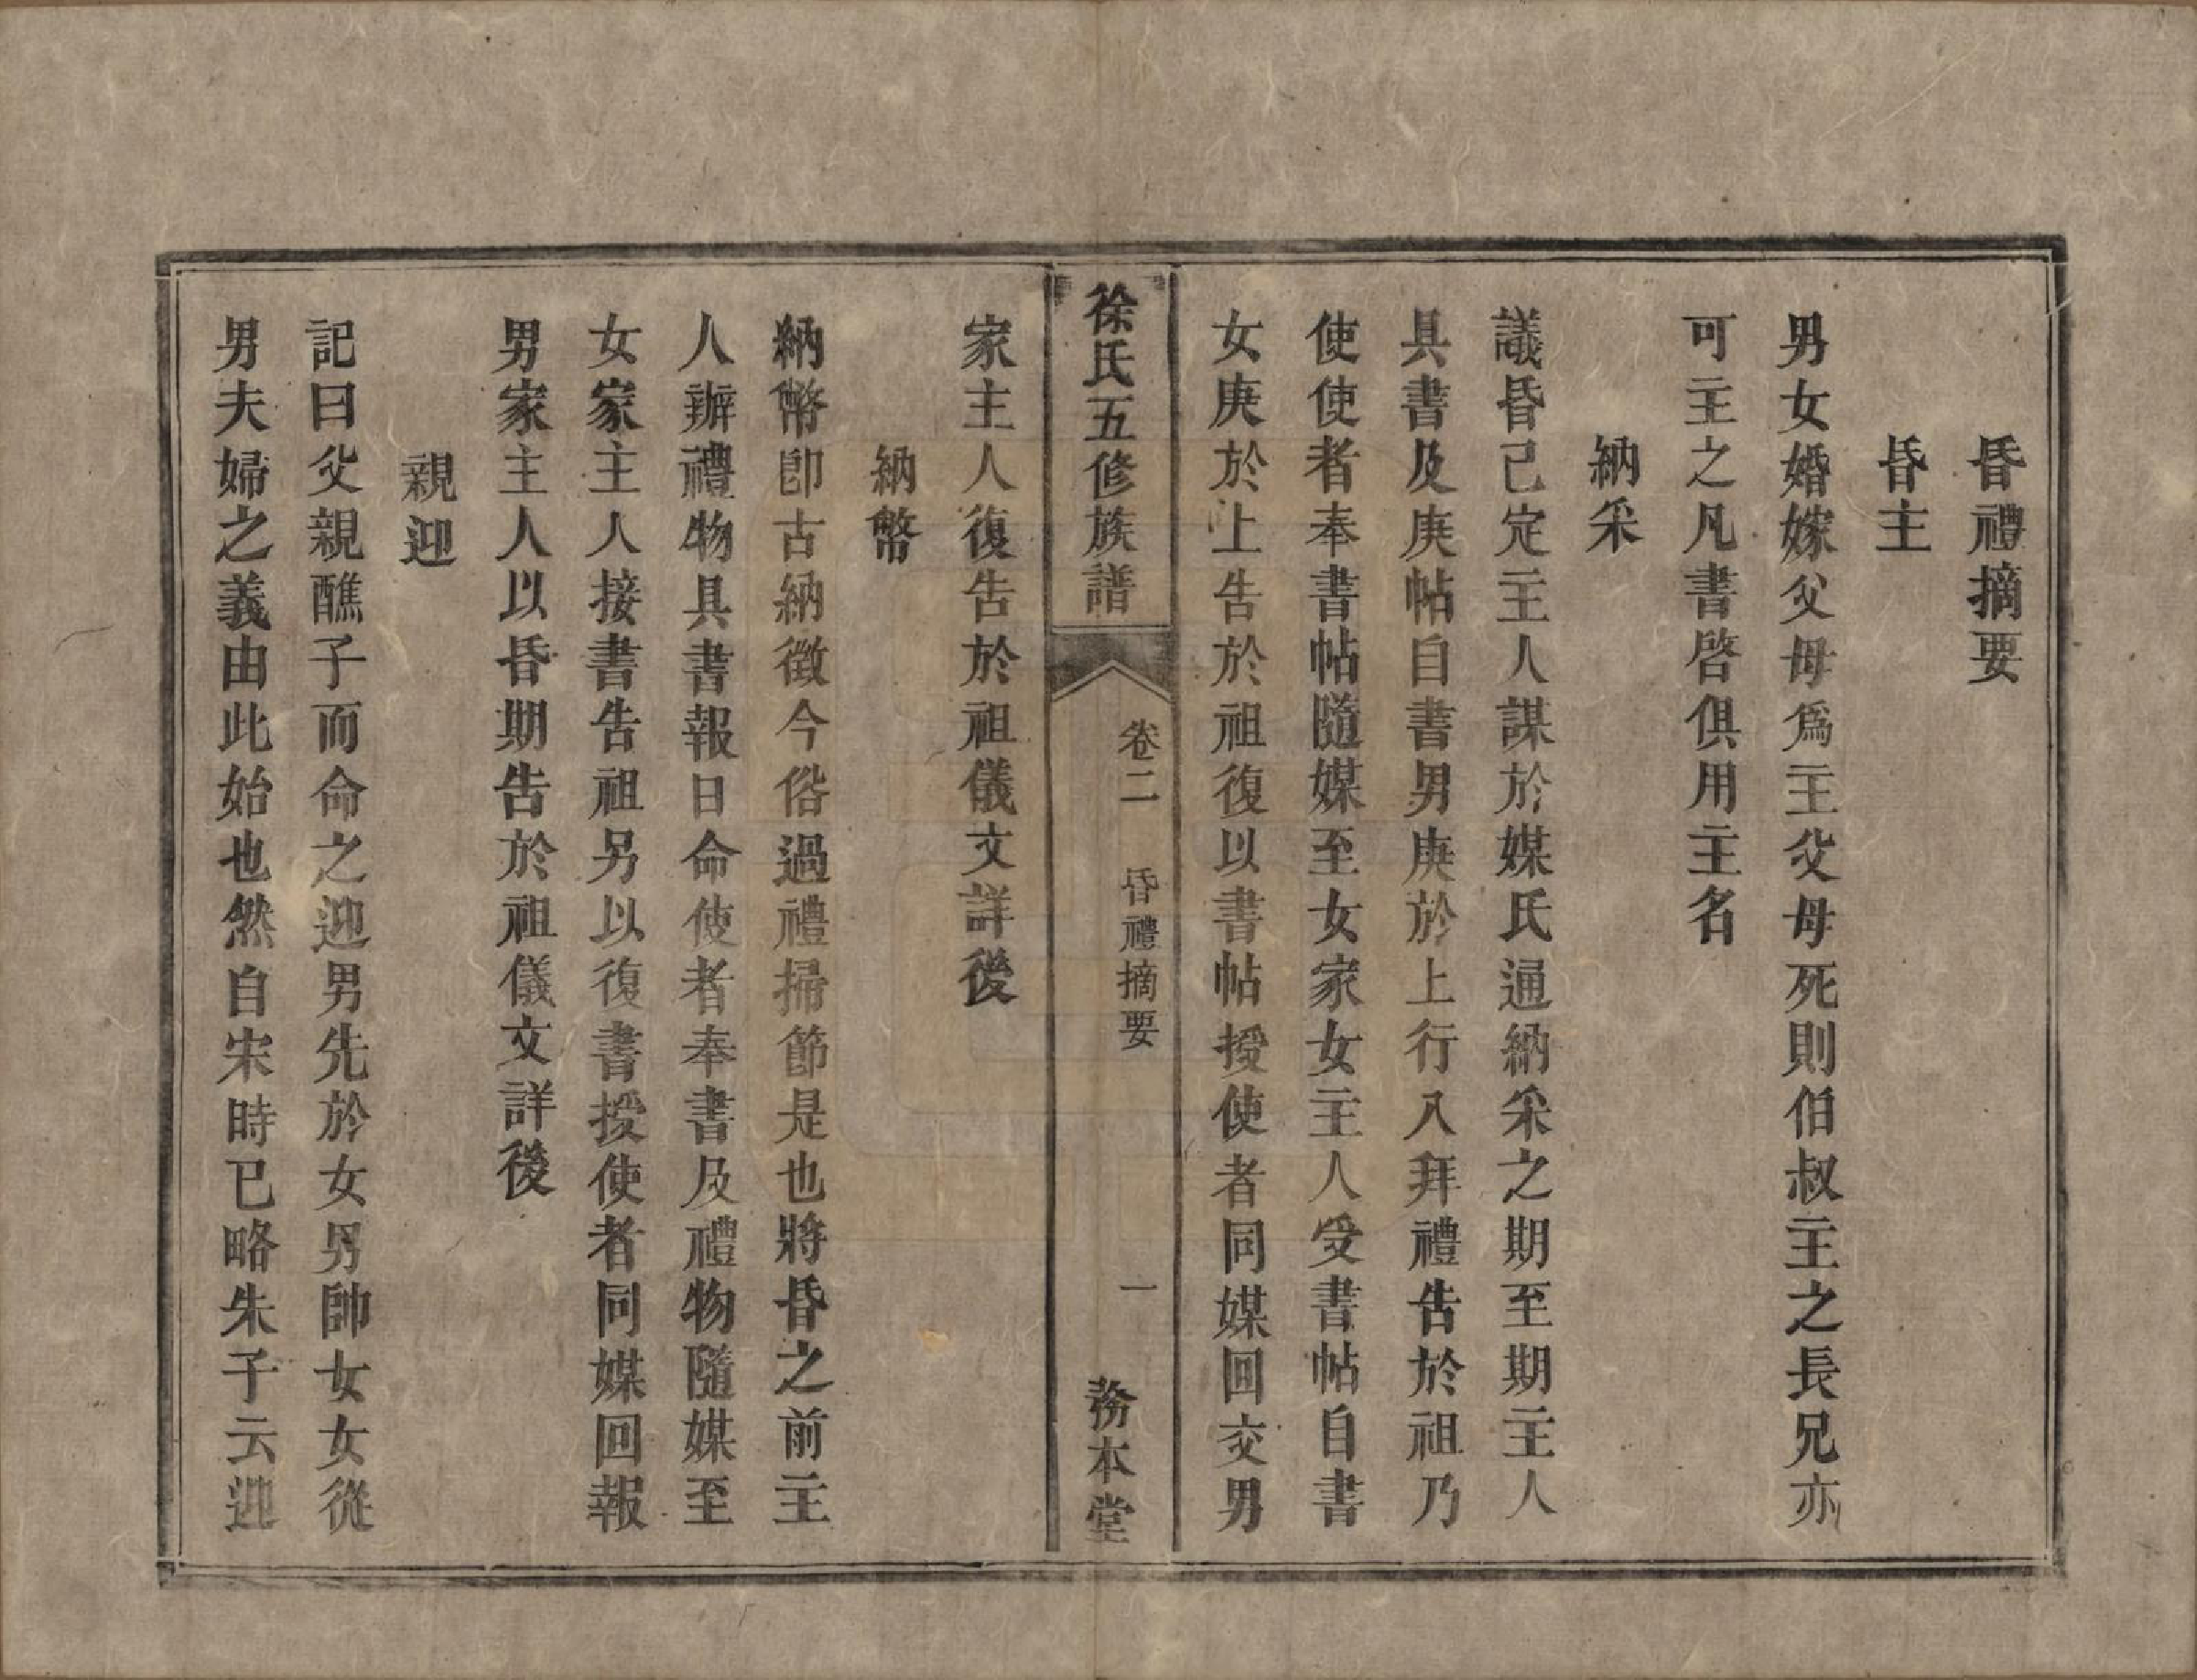 昏禮摘要
昏主
男女婚嫁父母爲主父母死則伯叔主之長兄亦
可主之凡書啓俱用主名
納采
議昏已定主人謀於媒氏通納采之期至期主人
具書及庚帖自書男庚於上行八拜禮告於祖乃
使使者奉書帖隨媒至女家女主人受書帖自書
女庚於上告於祖復以書帖授使者同媒回交男
徐氏五修族譜
卷二
昏禮摘要
一
務本堂
家主人復告於祖儀文詳後
納幣
納幣卽古納徵今俗過禮掃節是也將昏之前主
人辦禮物具書報日命使者奉書及禮物隨媒至
女家主人接書告祖另以復書授使者同媒回報
男家主人以昏期告於祖儀文詳後
親迎
記曰父親醮子而命之迎男先於女男帥女女從
男夫婦之義由此始也然自宋時已略朱子云迎